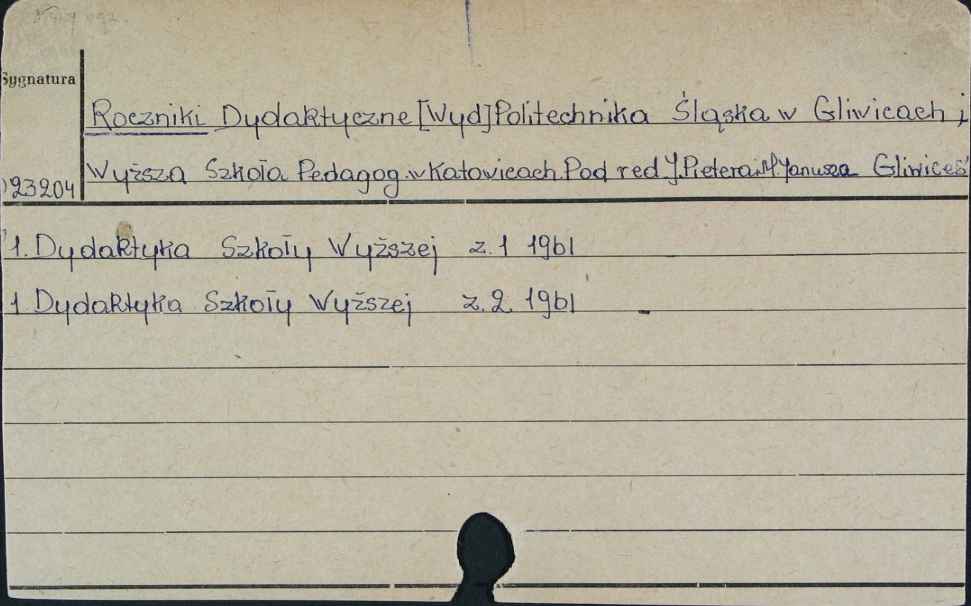 Sygnatura
Roczniki Dydaktyczne [Wyd] Politechnika Śląska w Gliwicach i
Wyższa Szkoła Pedagog. w Katowicach. Pod red J. Pietera i W. Janusza Gliwice
)23204
1. Dydaktyka Szkoły Wyższej z. 1 1961
1 Dydaktyka Szkoły Wyższej z. 2. 1961